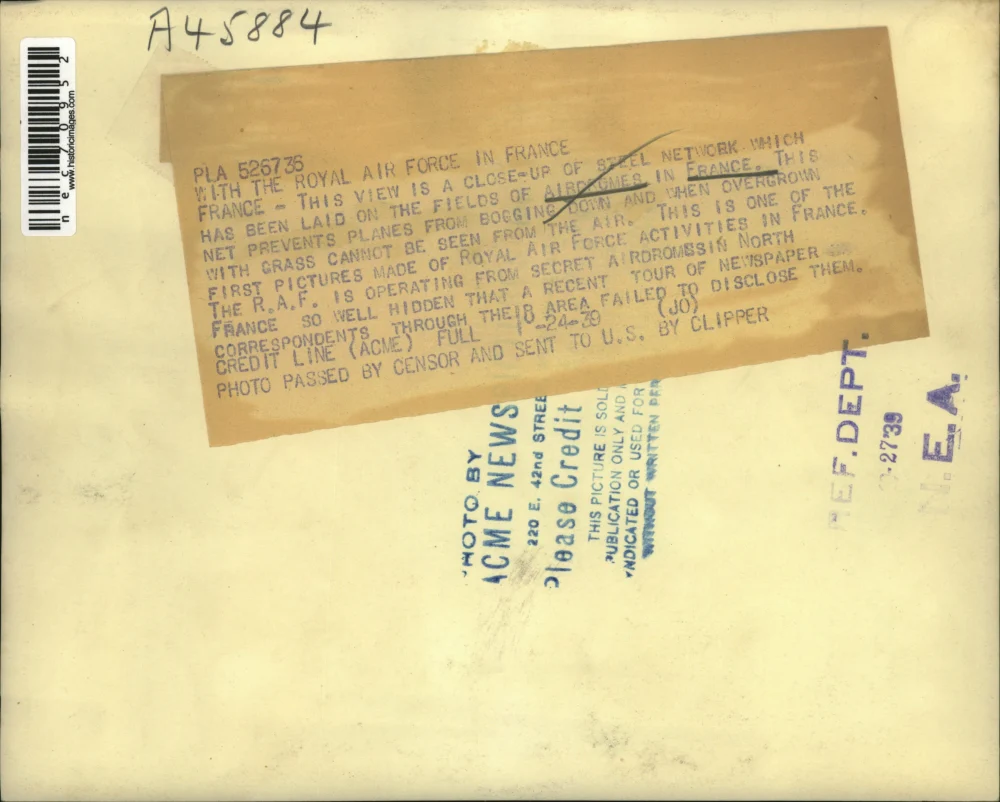 A45884
nec70952
www.historicimages.com
PLA 526736
WITH THE ROYAL AIR FORCE IN FRANCE
FRANCE - THIS VIEW IS A CLOSE-UP OF STEEL NETWORK WHICH
HAS BEEN LAID ON THE FIELDS OF AIRDROMES IN FRANCE. THIS
NET PREVENTS PLANES FROM BOGGING DOWN AND WHEN OVERGROWN
WITH GRASS CANNOT BE SEEN FROM THE AIR. THIS IS ONE OF THE
FIRST PICTURES MADE OF ROYAL AIR FORCE ACTIVITIES IN FRANCE.
THE R.A.F. IS OPERATING FROM SECRET AIRDROMSSIN NORTH
FRANCE SO WELL HIDDEN THAT A RECENT TOUR OF NEWSPAPER
CORRESPONDENTS THROUGH THE AREA FAILED TO DISCLOSE THEM.
CREDIT LINE (ACME) FULL -24-39 (JO)
PHOTO PASSED BY CENSOR AND SENT TO U.S. BY CLIPPER
PHOTO BY
ACME NEWS
220 E. 42nd STREE
Please Credit
THIS PICTURE IS SOL
PUBLICATION ONLY AND
INDICATED OR USED FOR
WITHOUT WRITTEN PER
REF. DEPT.
-27'39
N.E.A.